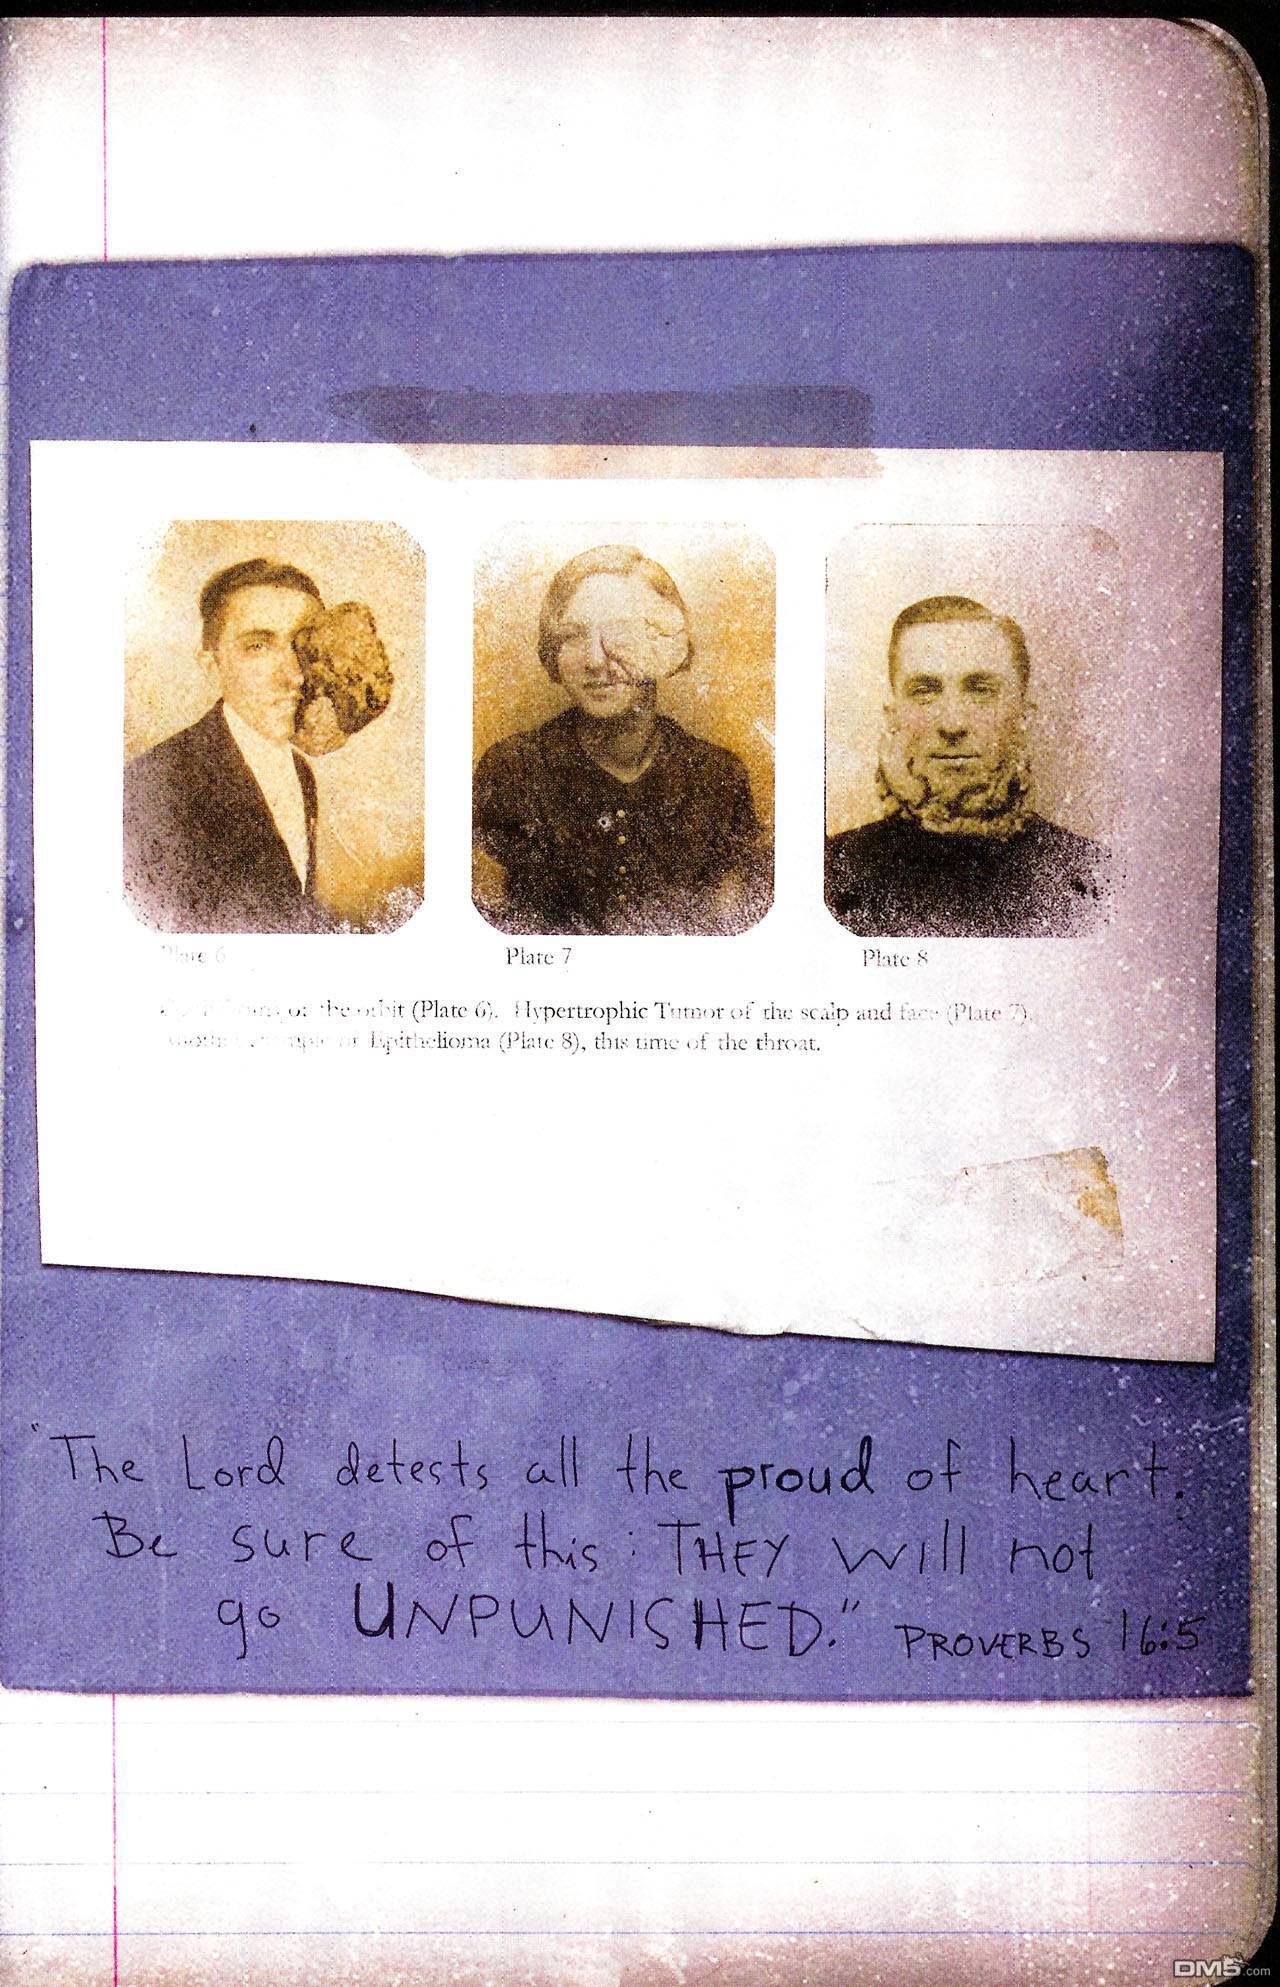 Plate 6
Plate 7
Plate 8
of the orbit (Plate 6). Hypertrophic Tumor of the scalp and face (Plate 7).
of Epithelioma (Plate 8), this time of the throat.
"The Lord detests all the proud of heart.
Be sure of this: THEY will not
go UNPUNISHED." PROVERBS 16:5
DM5.com